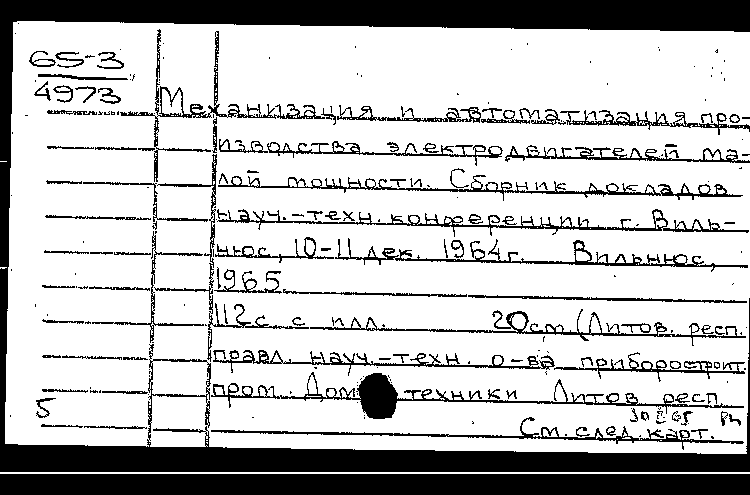 65-3
4973
Механизация и автоматизация про-
изводства электродвигателей ма-
лой мощности. Сборник докладов
науч.-техн. конференции г. Виль-
нюс, 10-11 дек. 1964г. Вильнюс,
1965.
112с с илл. 20см (Литов. респ.
правл. науч.-техн. о-ва приборостроит.
пром. Дом техники Литов респ.
5
См. след. карт.